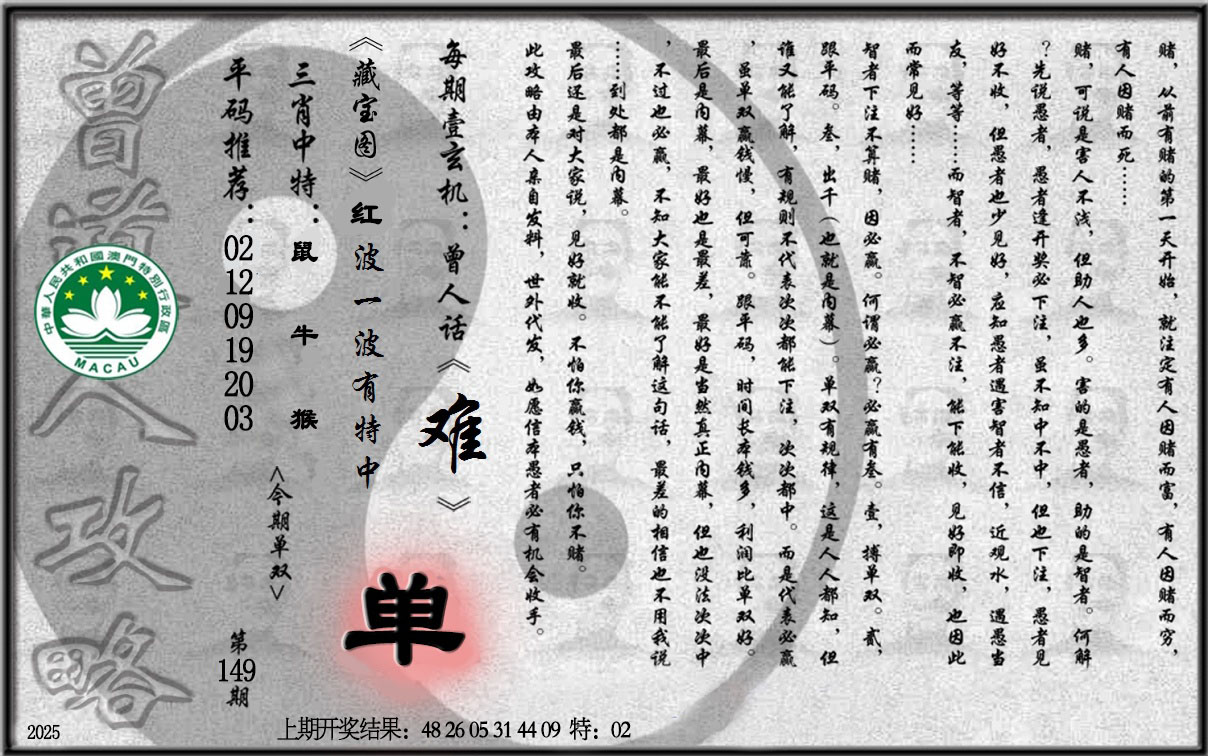 赌，从前有赌的第一天开始，就注定有人因赌而富，有人因赌而穷，
有人因赌而死……
赌，可说是害人不浅，但助人也多。害的是愚者，助的是智者。何解
？先说愚者，愚者逢开奖必下注，虽不知中不中，但也下注，愚者见
好不收，但愚者也少见好，应知愚者遇害智者不信，近观水，遇愚当
友，等等……而智者，不智必赢不注，能下能收，见好即收，也因此
而常见好……
智者下注不算赌，因必赢。何谓必赢？必赢有叁。壹，搏单双。贰，
跟平码。叁，出千（也就是内幕）。单双有规律，这是人人都知，但
谁又能了解，有规则不代表次次都能下注，次次都中。而是代表必赢
，虽单双赢钱慢，但可靠。跟平码，时间长本钱多，利润比单双好。
最后是内幕，最好也是最差，最好是当然真正内幕，但也没法次次中
，不过也必赢，不知大家能不能了解这句话，最差的相信也不用我说
……到处都是内幕。
最后还是对大家说，见好就收。不怕你赢钱，只怕你不赌。
此攻略由本人亲自发料，世外代发，如愿信本愚者必有机会收手。
每期壹玄机：曾人话《难》
《藏宝图》红波一波有特中
单
三肖中特：鼠 牛 猴
<今期单双>
平码推荐：02 12 09 19 20 03
第149期
曾道人攻略
中華人民共和國澳門特別行政區
MACAU
2025
上期开奖结果：48 26 05 31 44 09 特：02